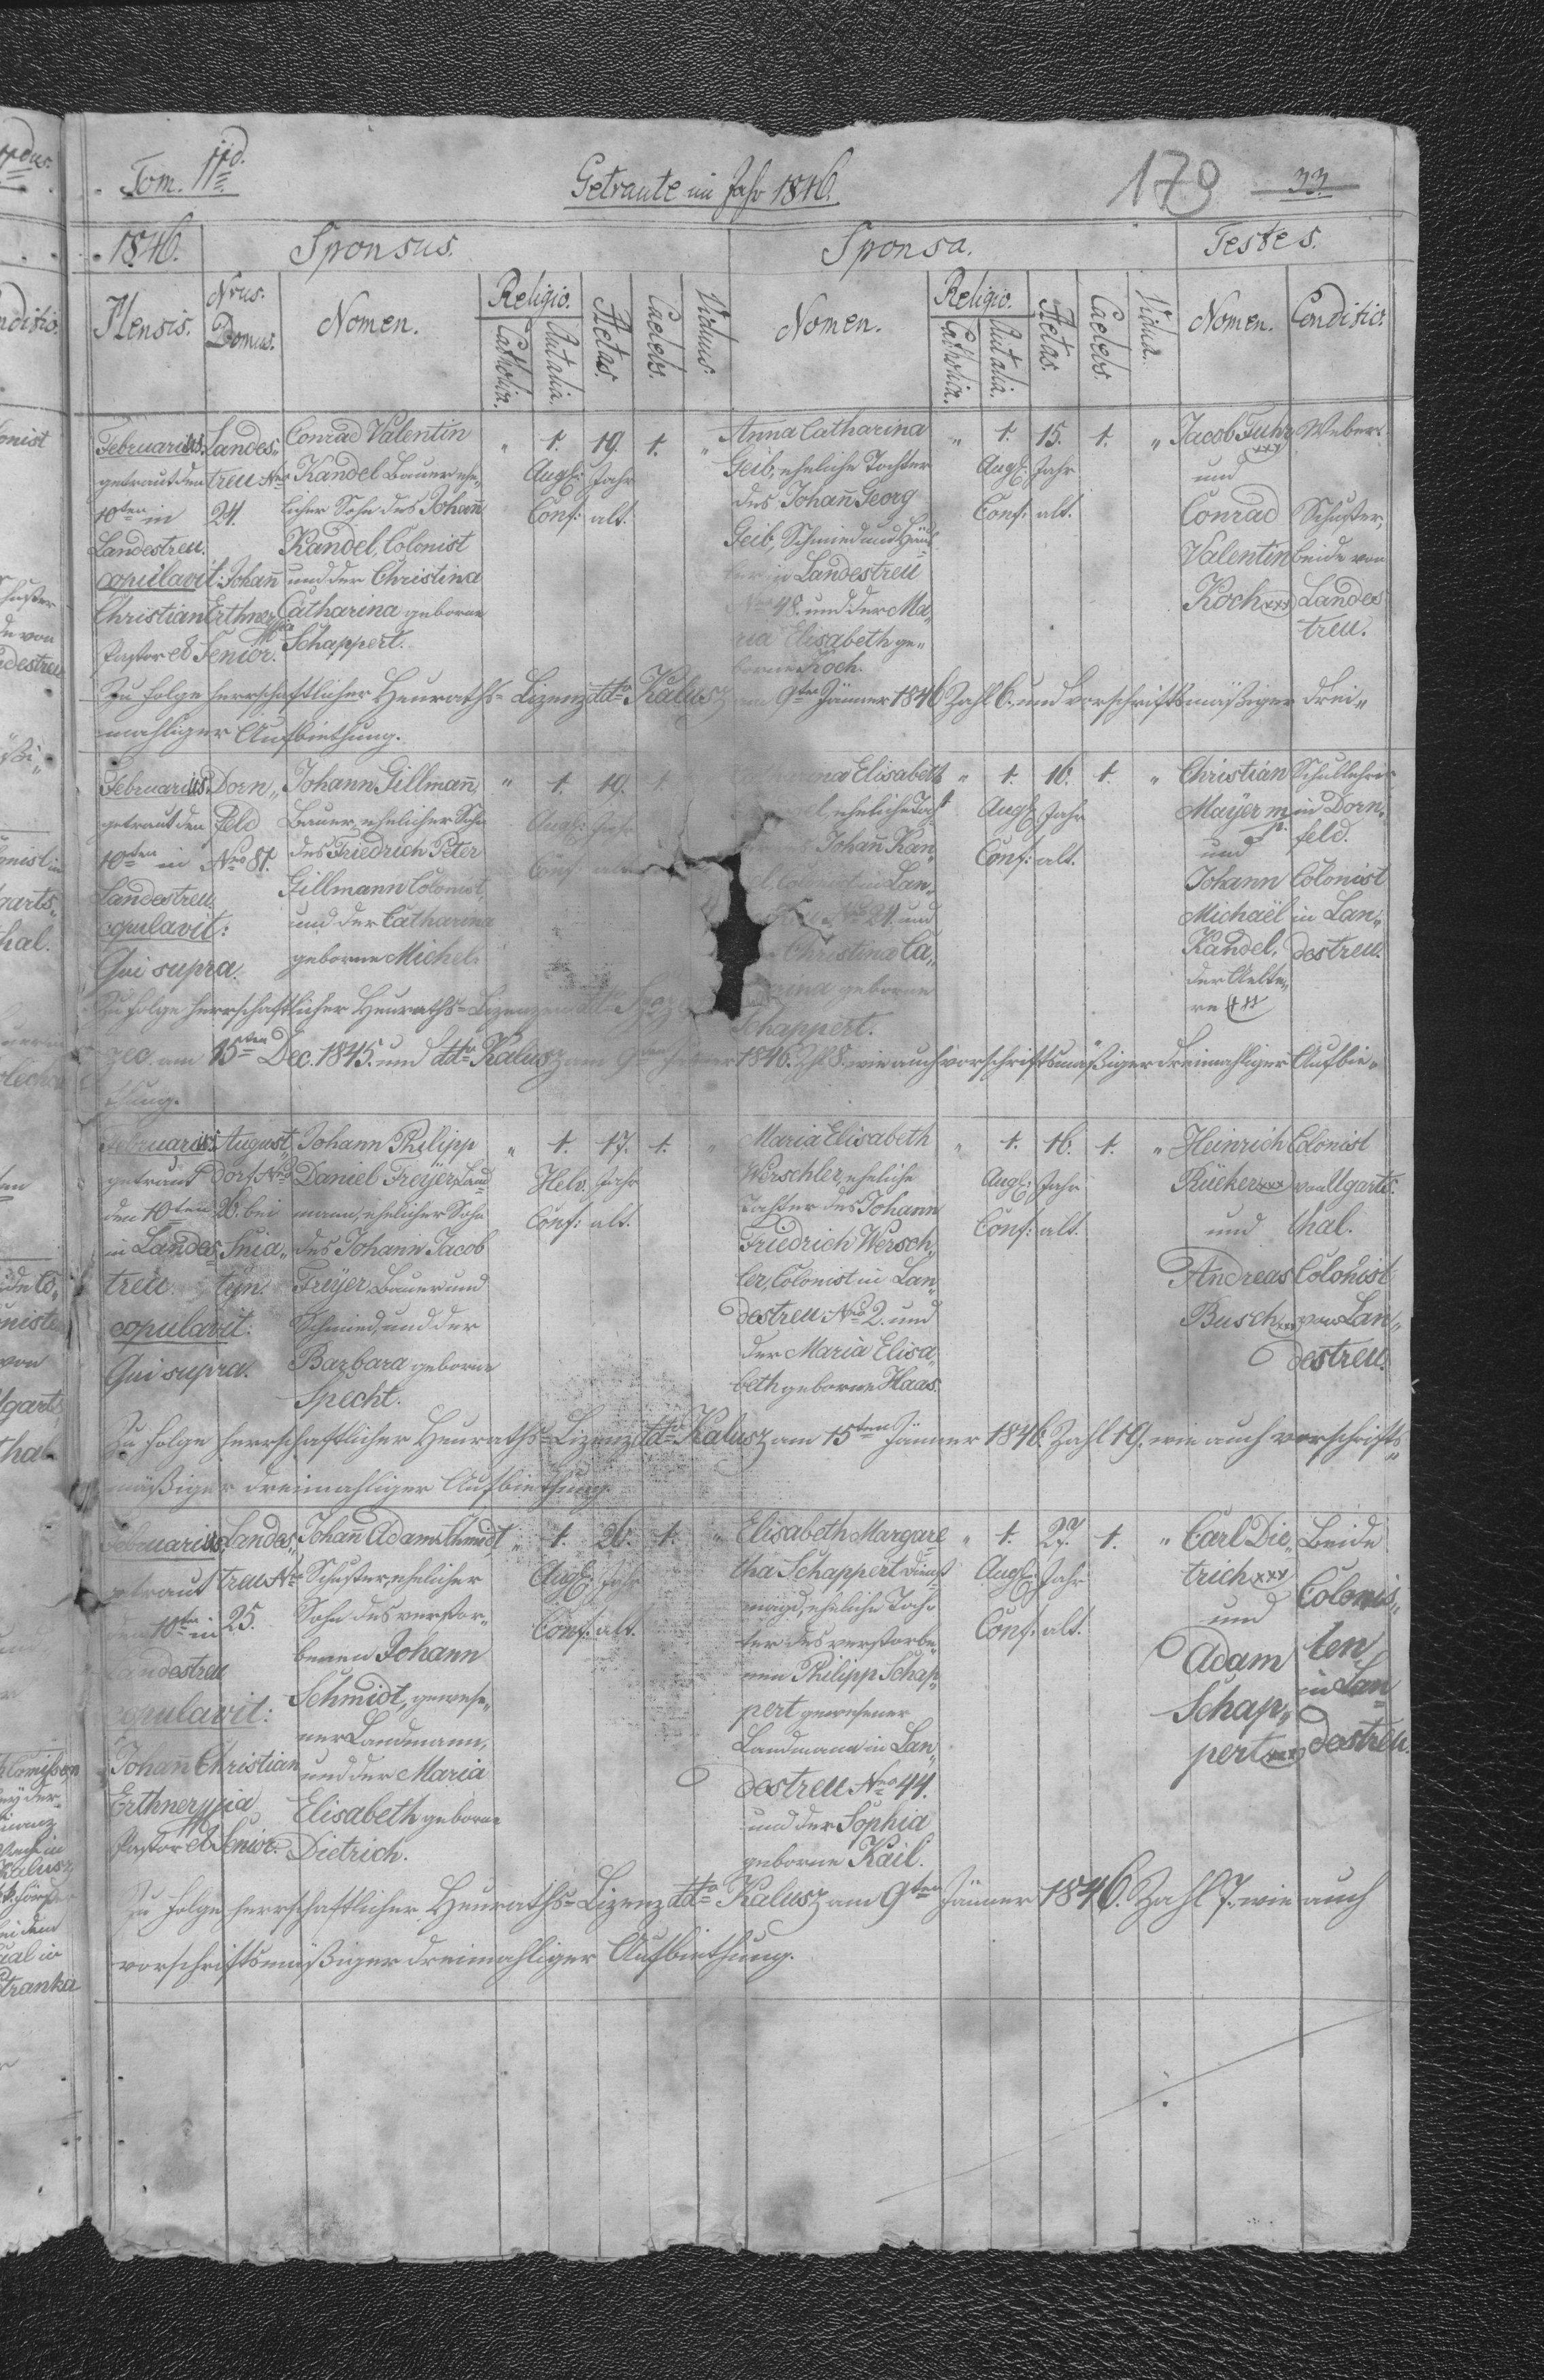 Tom. IId.
Getraute im Jahr 1846.
179 33.
1846. Sponsus. Sponsa. Testes.
Mensis. Nrus. Domus. Nomen. Religio. Catholica. Aut alia. Aetas. Caelebs. Viduus. Nomen. Religio. Catholica. Aut alia. Aetas. Caelebs. Vidua. Nomen. Conditio.
Februarius.
getraut den
10ten in
Landestreu.
copulavit: Johañ
Christian Erthner
Pastor et Senior.
Landes„
treu Nro
24.
Conrad Valentin
Kandel Bauer ehe„
licher Sohn des Johañ
Kandel, Colonist
und der Christina
Catharina geborne
Schappert.
" 1. 19. 1. "
Augs: Jahr
Conf: alt.
Anna Catharina
Geib, eheliche Tochter
des Johañ Georg
Geib, Schmied und Häus„
ler in Landestreu
Nro 48. und der Ma„
ria Elisabeth ge„
borne Koch.
" 1. 15. 1. "
Augs: Jahr
Conf: alt.
Jacob Fuhr
xxx
und
Conrad
Valentin
Koch xxx
Weber.
Schuster,
beide von
Landes
treu.
Zu folge herrschaftlicher Heuraths-Lizenz ddto Kalusz am 9ten Jänner 1846 Zahl 6. und vorschriftsmäßiger drei„
mahliger Aufbiethung.
Februarius.
getraut den
10ten in
Landestreu
copulavit:
Qui supra.
Dorn„
feld
Nro 81.
Johann Gillmañ,
Bauer, ehelicher Sohn
des Friedrich Peter
Gillmann Colonist,
und der Catharina
geborne Michel.
" 1. 19. 1.
Augs: Jahr
Conf: alt.
Catharina Elisabeth
eheliche Toch
Johañ Kan„
Colonist in Lan„
Nro 24. und
Christina Ca„
geborne
Schappert.
" 1. 16. 1. "
Augs: Jahr
Conf: alt.
Christian
Mayer m.p.
und
Johann
Michaël
Kandel,
der Aelte„
re xxx
Schullehrer
in Dorn„
feld.
Colonist
in Lan„
destreu.
Zu folge herrschaftlicher Heuraths-Lizenzen ddto
am 15ten Dec. 1845. und ddto Kalusz am 9ten Jänner 1846. Zahl 8. wie auch vorschriftsmäßiger dreimahliger Aufbie„
thung.
Februarius
getraut
den 10ten
in Landes„
treu.
copulavit:
Qui supra.
August„
dorf Nro
26. bei
Snia„
tyn.
Johann Philipp
Daniel Freÿer, Land
mann, ehelicher Sohn
des Johann Jacob
Freÿer Bauer und
Schmied, und der
Barbara geborne
Specht.
" 1. 17. 1. "
Helv. Jahr
Conf: alt.
Maria Elisabeth
Werschler, eheliche
Tochter des Johann
Friedrich Wersch„
ler, Colonist in Lan„
destreu Nro 2. und
der Maria Elisa„
beth geborne Haas.
" 1. 16. 1. "
Augs: Jahr
Conf: alt.
Heinrich
Rücker xxx
und
Andreas
Busch xxx
Colonist
von Ugarts„
thal.
Colonist
von Lan„
destreu.
Zu folge herrschaftlicher Heuraths-Lizenz ddto Kalusz am 15ten Jänner 1846. Zahl 19. wie auch vorschrifts„
mäßiger dreimahliger Aufbiethung.
Februarius
getraut
den 10ten in
Landestreu
copulavit:
Johañ Christian
Erthner
Pastor et Senior.
Landes„
treu Nro
25.
Johañ Adam Schmidt,
Schuster, ehelicher
Sohn des verstor„
benen Johann
Schmidt, gewese„
ner Landmann,
und der Maria
Elisabeth geborne
Dietrich.
" 1. 26. 1. "
Augs: Jahr
Conf: alt.
Elisabeth Margare
tha Schappert Dienst
magd, eheliche Toch
ter des verstorbe„
nen Philipp Schap„
pert gewesener
Landmann in Lan„
destreu Nro 44.
und der Sophia
geborne Kail.
" 1. 27. 1. "
Augs: Jahr
Conf: alt.
Carl Die„
trich xxx
und
Adam
Schap„
pert xxx
Beide
Colonis„
ten
in Lan„
destreu.
Zu folge herrschaftlicher Heuraths-Lizenz ddto Kalusz am 9ten Jänner 1846. Zahl 7. wie auch
vorschriftsmäßiger dreimahliger Aufbiethung.